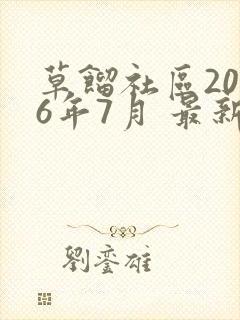 草餾社區20
6年7月 最新
劉鑾雄